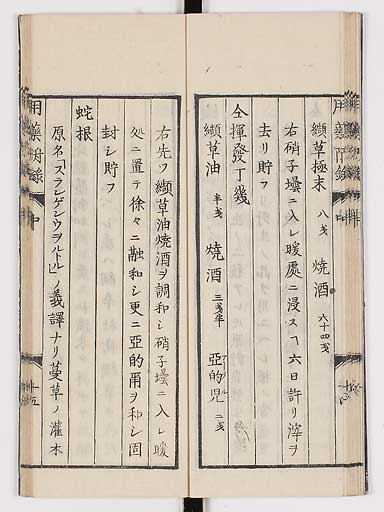 纈草極末 八戔 燒酒 六十四戔
右硝子壜ニ入レ暖處ニ浸スヿ六日許リ滓ヲ
去リ貯フ
仝揮發丁幾
纈草油 半戔 燒酒 三戔半 亞的児 二戔
右先ツ纈草油燒酒ヲ調和シ硝子壜ニ入レ暖
処ニ置テ徐々ニ融和シ更ニ亞的爾ヲ和シ固
封シ貯フ
蛇根
原名「スランゲンウヲルトル」ノ義譯ナリ蔓草ノ灌木
中